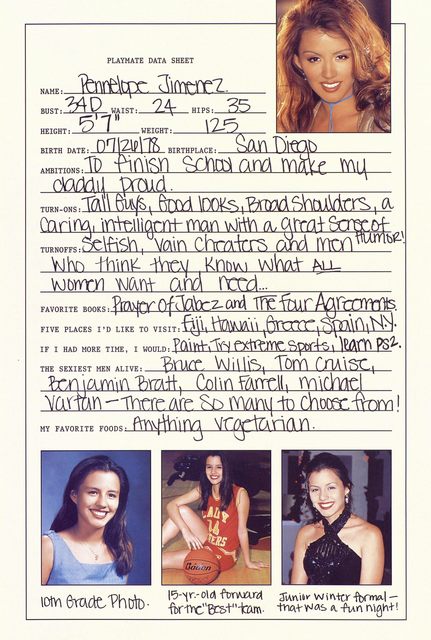 PLAYMATE DATA SHEET
NAME: Pennelope Jimenez
BUST: 34D WAIST: 24 HIPS: 35
HEIGHT: 5'7" WEIGHT: 125
BIRTH DATE: 07/26/78 BIRTHPLACE: San Diego
AMBITIONS: To finish school and make my
daddy proud.
TURN-ONS: Tall Guys, Good looks, Broad Shoulders, a
Caring, intelligent man with a great Sense of
Humor!
TURNOFFS: Selfish, vain cheaters and men
who think they know what ALL
women want and need...
FAVORITE BOOKS: Prayer of Jabez and The Four Agreements.
FIVE PLACES I'D LIKE TO VISIT: Fiji, Hawaii, Greece, Spain, N.Y.
IF I HAD MORE TIME, I WOULD: Paint, Try extreme sports, learn PS2.
THE SEXIEST MEN ALIVE: Bruce Willis, Tom Cruise,
Benjamin Bratt, Colin Farrell, michael
Vartan – There are so many to choose from!
MY FAVORITE FOODS: Anything vegetarian.
LADY
14
TERS
Baden
10th Grade Photo.
15-yr.-old forward
for the "Best" team.
Junior winter formal –
that was a fun night!